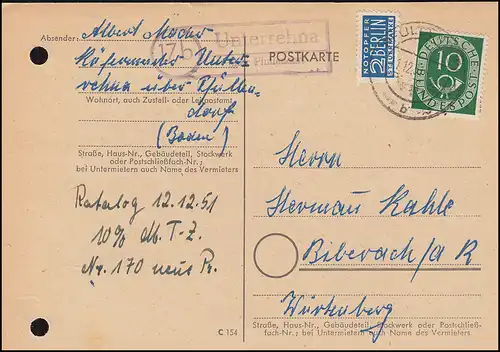 Absender: Albert Mader
Käferweiler Unter-
rehna über Pfullen-
dorf
(Baden)
Wohnort, auch Zustell- oder Leitpostamt
Straße, Haus-Nr., Gebäudeteil, Stockwerk
oder Postschließfach-Nr.;
bei Untermietern auch Name des Vermieters
Katalog 12.12.51
10% T-Z.
Nr. 170
C 154
17b Unterrehna
POSTKARTE
NOTOPFER
2 BERLIN
STEUERMARKE
DEUTSCHE
BUNDESPOST
10
Herrn
Herman Kahle
Biberach/a R
Württenberg
Straße, Haus-Nr., Gebäudeteil, Stockwerk oder Postschließ-
fach-Nr.; bei Untermietern auch Name des Vermieters